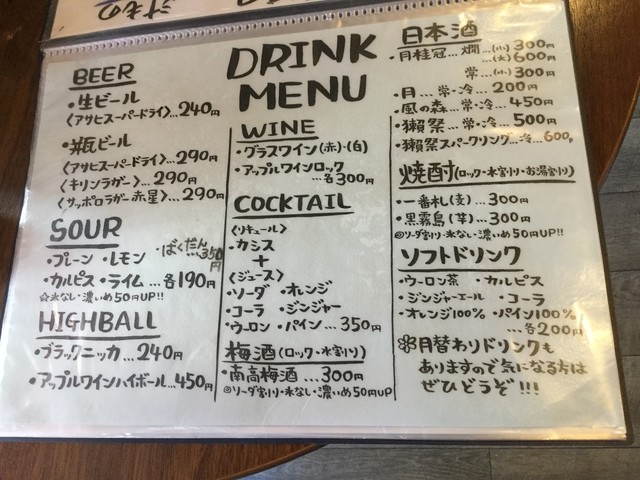 DRINK
MENU
BEER
・生ビール
〈アサヒスーパードライ〉…240円
・瓶ビール
〈アサヒスーパードライ〉…290円
〈キリンラガー〉…290円
〈サッポロラガー赤星〉…290円
SOUR
・プレーン ・レモン ・ばくだん…350円
・カルピス ・ライム…各190円
☆氷なし・濃いめ50円UP!!
HIGHBALL
・ブラックニッカ…240円
・アップルワインハイボール…450円
WINE
・グラスワイン(赤)・(白)
・アップルワインロック
…各300円
COCKTAIL
〈リキュール〉
・カシス
+
〈ジュース〉
・ソーダ ・オレンジ
・コーラ ・ジンジャー
・ウーロン ・パイン…350円
梅酒(ロック・水割り)
・南高梅酒…300円
◎ソーダ割り・氷なし・濃いめ50円UP
日本酒
・月桂冠 燗…(小)300円
…(大)600円
常…(小)300円
・月…常・冷…200円
・風の森…常・冷…450円
・獺祭…常・冷…500円
・獺祭スパークリング…冷…600円
焼酎(ロック・水割り・お湯割り)
・一番札(麦)…300円
・黒霧島(芋)…300円
◎ソーダ割り・氷なし・濃いめ50円UP!!
ソフトドリンク
・ウーロン茶 ・カルピス
・ジンジャーエール ・コーラ
・オレンジ100% ・パイン100%
…各200円
❀月替わりドリンクも
ありますので気になる方は
ぜひどうぞ!!!